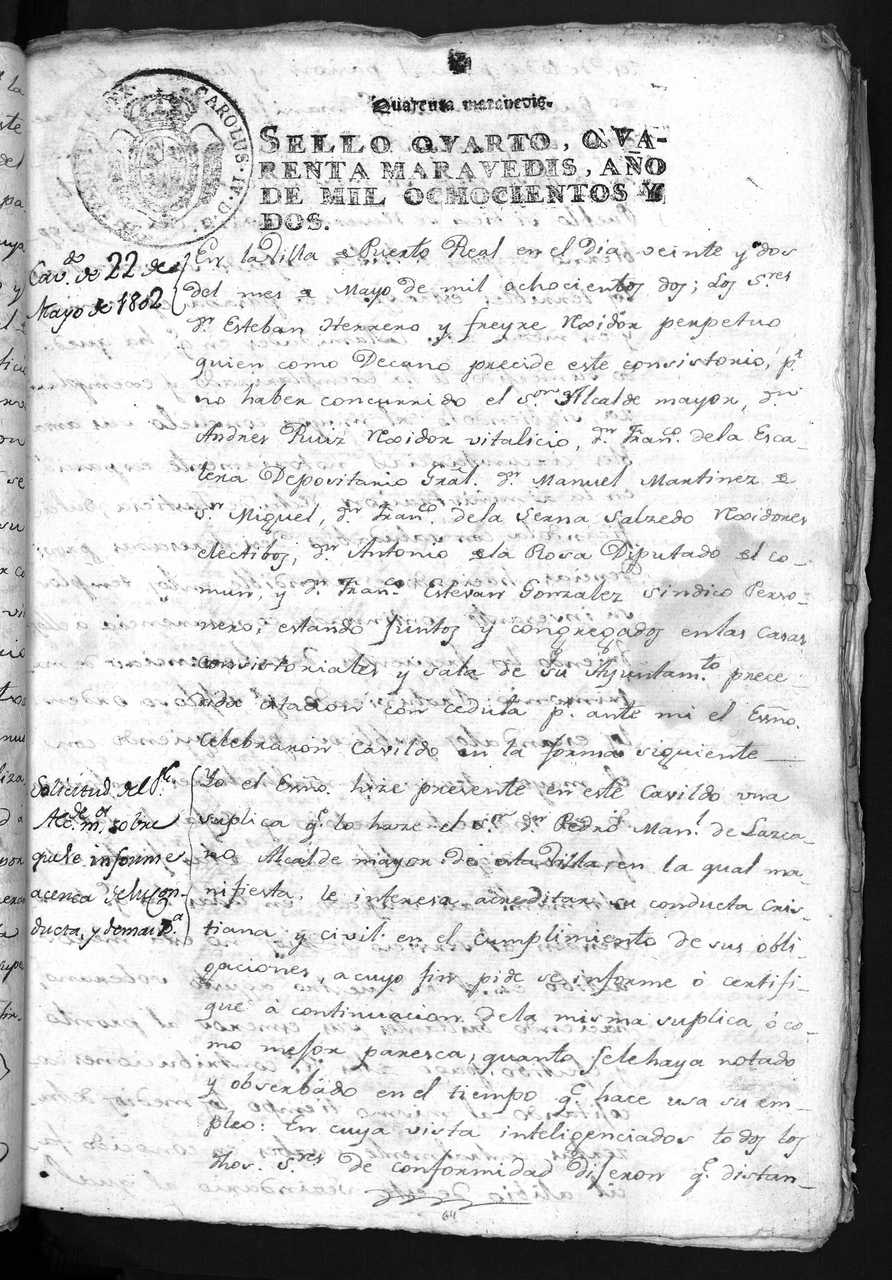 Quarenta maravedis.
SELLO QVARTO, QVA-
RENTA MARAVEDIS, AÑO
DE MIL OCHOCIENTOS Y
DOS.
CAROLUS·IV·D·G·
Cav.do de 22 de
Mayo de 1802
En la Villa de Puerto Real en el Dia veinte y dos
del mes de Mayo de mil ochocientos dos; los S.res
d.n Esteban Herrero y freyre Rexidor perpetuo
quien como Decano precide este consistorio, p.r
no haber concurrido el S.or Alcalde mayor, d.n
Andres Ruiz Rexidor vitalicio, d.n Fran.co de la Esca-
lera Depositario Gral. d.n Manuel Martinez de
S.n Miguel, d.n Fran.co de la Serna Salzedo Rexidores
electibos, d.n Antonio de la Rosa Diputado del co-
mun, y d.n Fran.co Estevan Gonzalez Sindico Perso-
nero; estando Juntos y congregados en las Casas
consistoriales y sala de su Ayuntam.to prece-
dida citacion con cedula p.r ante mi el Essno.
celebraron Cavildo en la forma siguiente
Solicitud del S.r
Alc.de m.or sobre
que le informe
acerca de su con-
ducta, y demas
Yo el Essno. hize presente en este Cavildo una
suplica q.e lo hace el S.or d.n Pedro Man.l de Lazca-
no Alcalde mayor de esta Villa, en la qual ma-
nifiesta, le interesa acreditar su conducta Cris-
tiana y civil en el cumplimiento de sus obli-
gaciones, a cuyo fin pide se informe ó certifi-
que á continuacion de la misma suplica ó co-
mo mejor paresca, quanto se le haya notado
y obserbado en el tiempo q.e hace usa su em-
pleo: En cuya vista inteligenciados todos los
dhos. S.res de conformidad dijeron q.e distan-